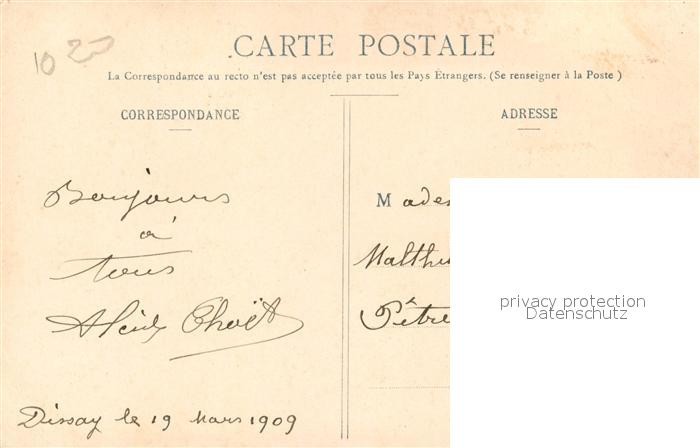 10 20
CARTE POSTALE
La Correspondance au recto n'est pas acceptée par tous les Pays Étrangers. (Se renseigner à la Poste)
CORRESPONDANCE
Bonjours
à
tous
Choët
Dissay le 19 Mars 1909
ADRESSE
Mades
Malthu
Pêtre
privacy protection
Datenschutz